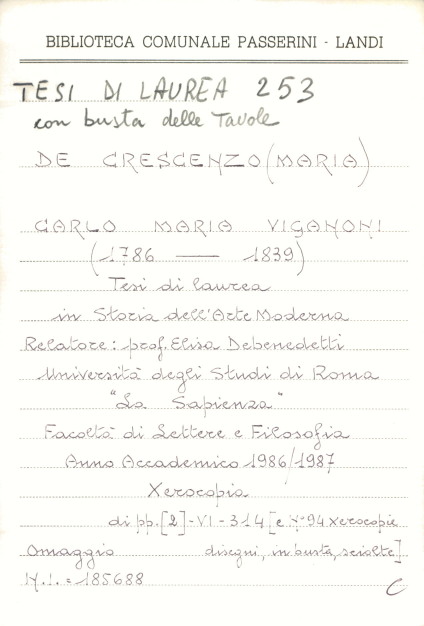 BIBLIOTECA COMUNALE PASSERINI - LANDI
TESI DI LAUREA 253
con busta delle Tavole
DE CRESCENZO (MARIA)
CARLO MARIA VIGANONI
(1786 — 1839)
Tesi di laurea
in Storia dell'Arte Moderna
Relatore: prof. Elisa Debenedetti
Università degli Studi di Roma
"La Sapienza"
Facoltà di Lettere e Filosofia
Anno Accademico 1986/1987
Xerocopia
di pp. [2]-VI-314 [e N° 94 xerocopie
Omaggio disegni, in busta, sciolte]
N.I. = 185688 C